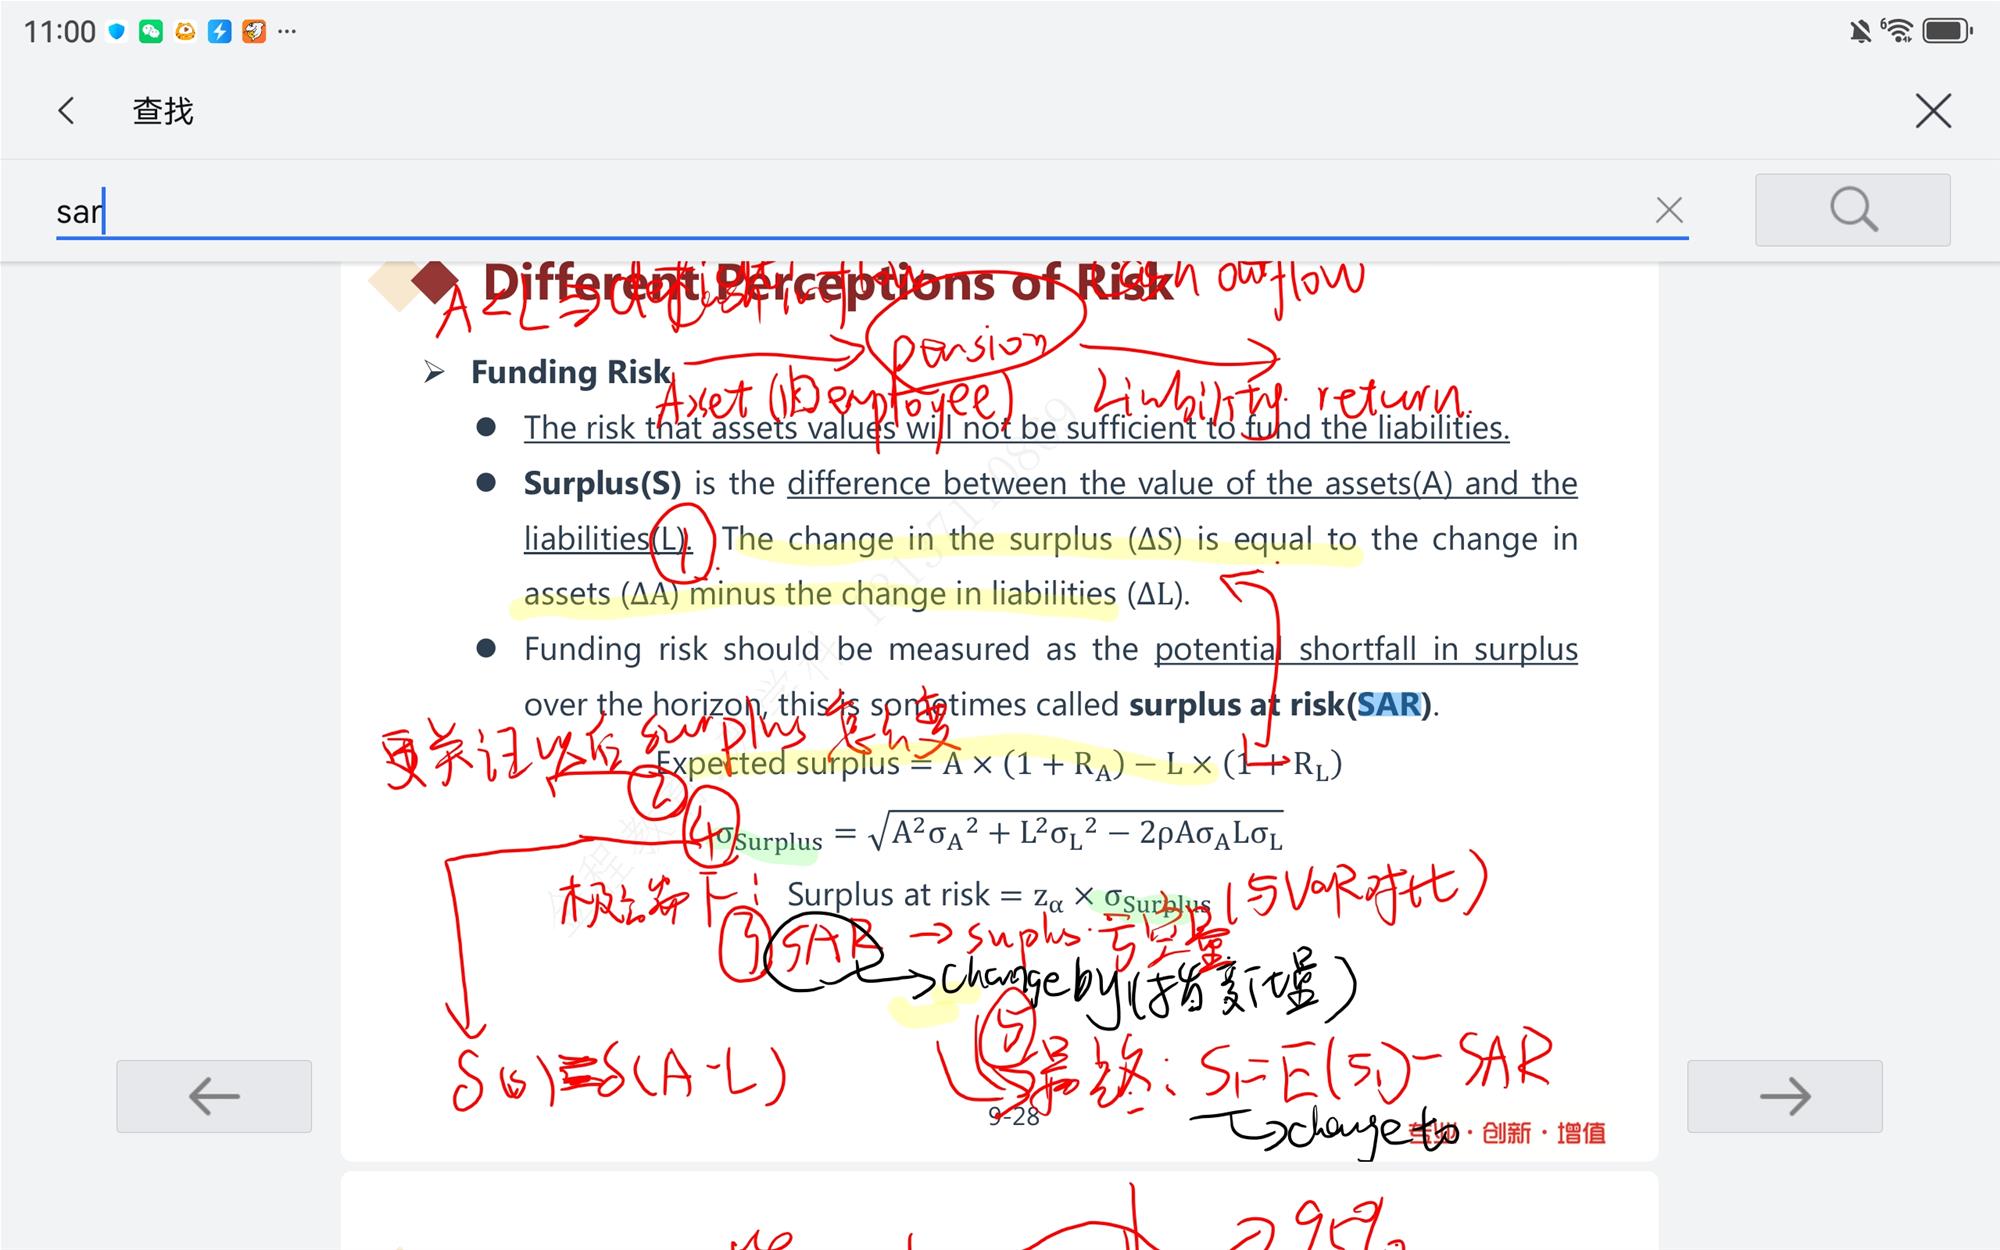 11:00 ...
查找
sar
Different Perceptions of Risk outflow
A < L ⇒
pension
Funding Risk
Asset (旧employee) Liability return
The risk that assets values will not be sufficient to fund the liabilities.
Surplus(S) is the difference between the value of the assets(A) and the
liabilities(L). The change in the surplus (ΔS) is equal to the change in
①
assets (ΔA) minus the change in liabilities (ΔL).
Funding risk should be measured as the potential shortfall in surplus
over the horizon, this is sometimes called surplus at risk(SAR).
更关注以后 surplus 怎么变
Expected surplus = A × (1 + R_A) − L × (1 + R_L)
②
④ σ_Surplus = √(A²σ_A² + L²σ_L² − 2ρAσ_ALσ_L)
极端 下: Surplus at risk = z_α × σ_Surplus (与VaR对比)
③ SAR → suplus 亏空量
→ change by (指变化量)
⑤ 最终: S_1=E(S_1) - SAR
δ(s)=δ(A-L)
9-28
→ change to
专业·创新·增值
95%